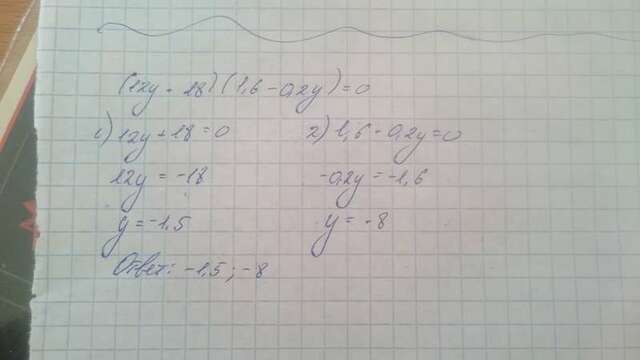 (12y + 18)(1,6 - 0,2y) = 0
1) 12y + 18 = 0 2) 1,6 - 0,2y = 0
12y = -18 -0,2y = -1,6
y = -1,5 y = -8
Ответ: -1,5 ; -8